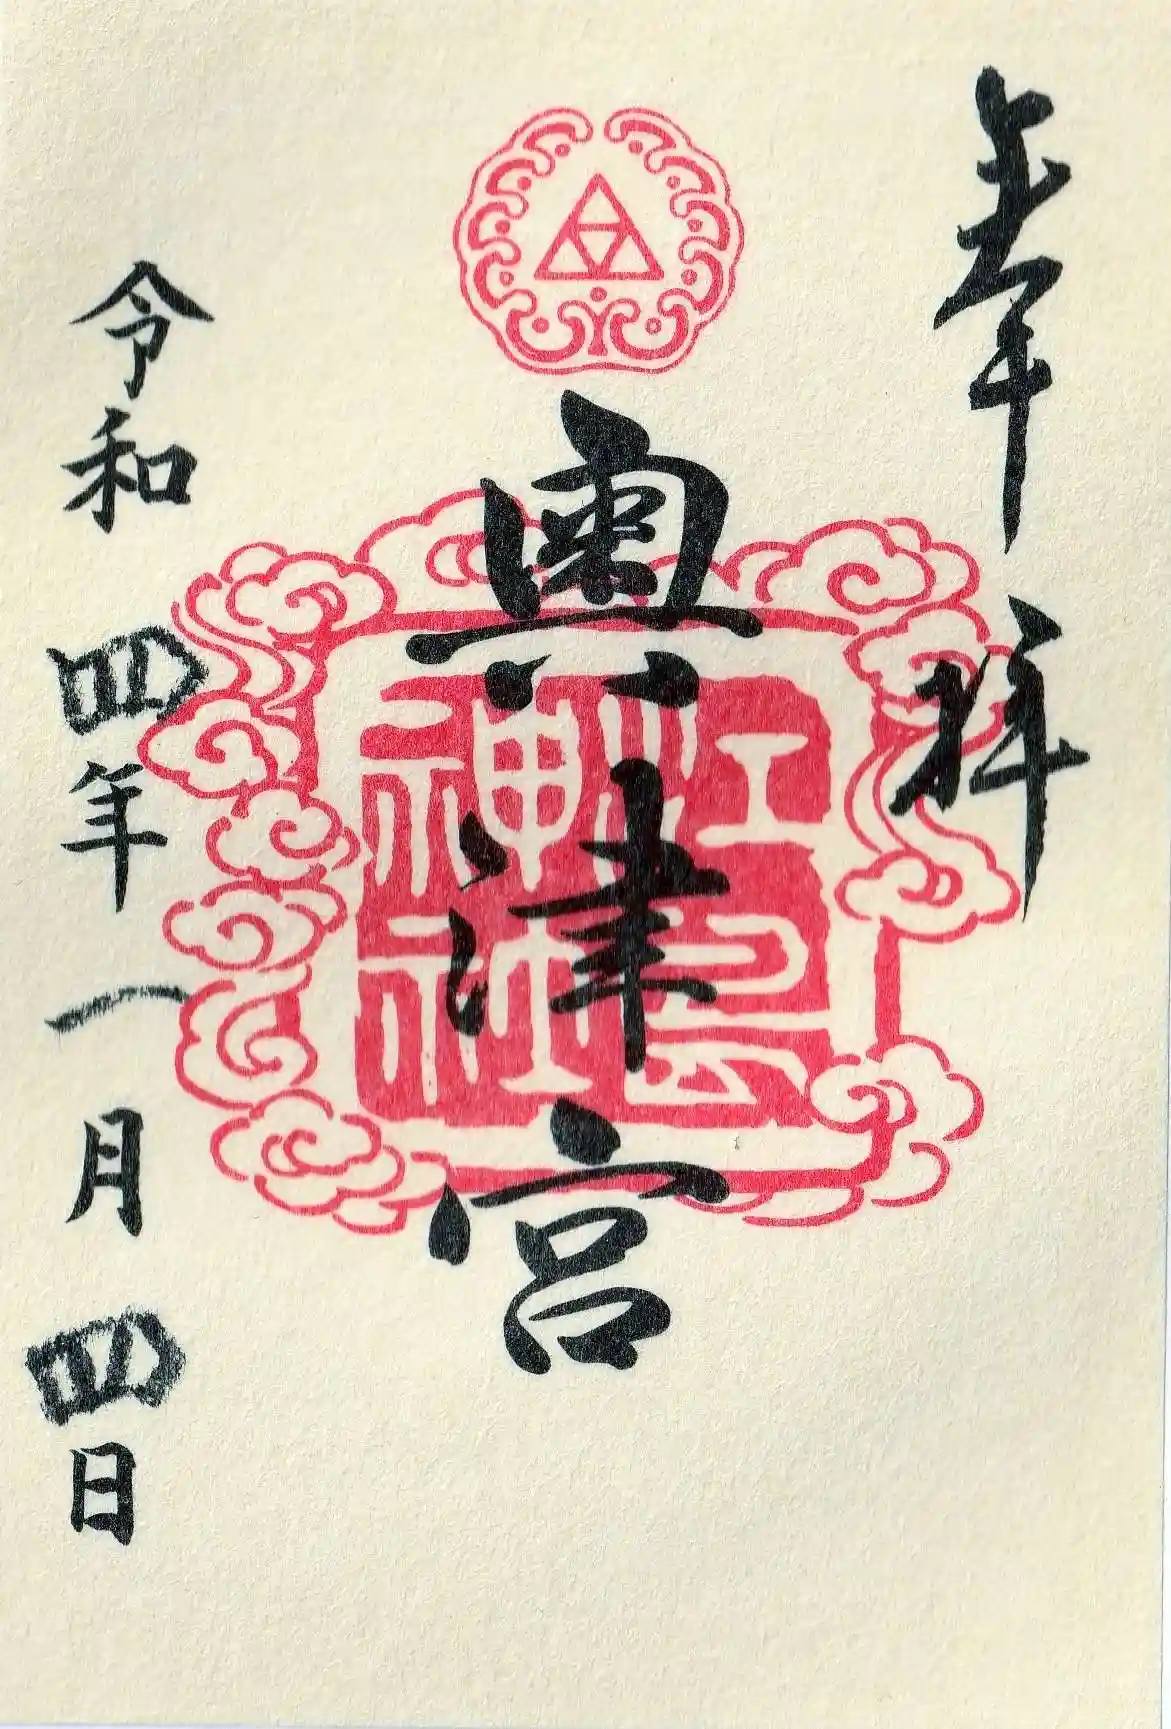 奉拝
奥津宮
江島神社
令和四年一月四日